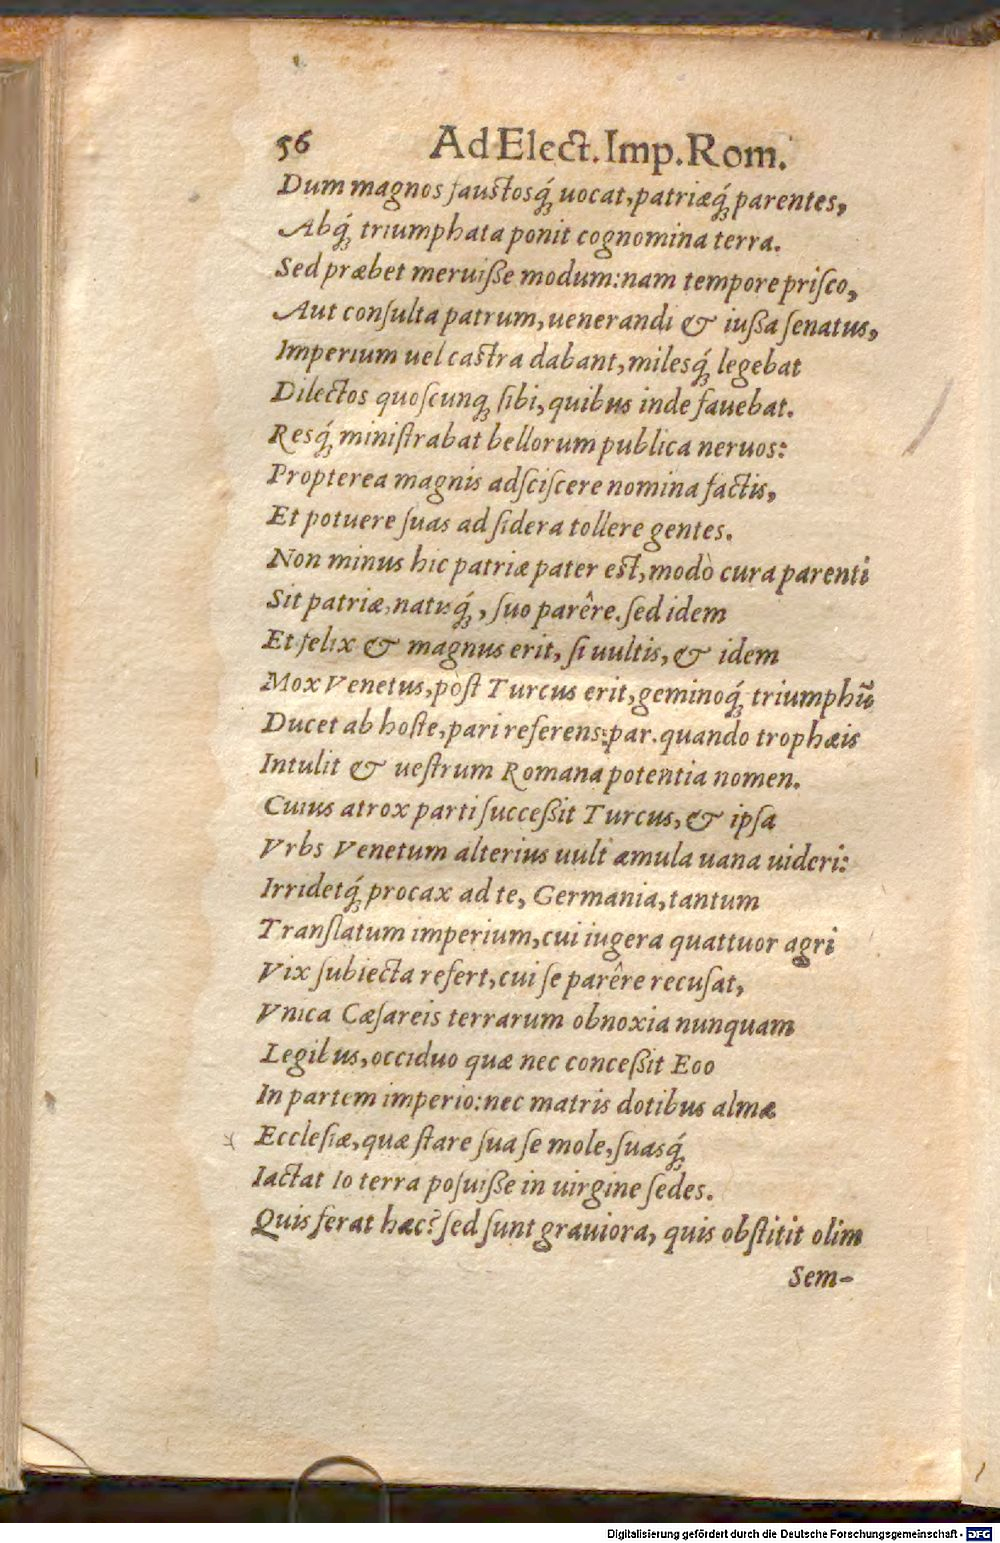 56 Ad Elect. Imp. Rom.
Dum magnos faustosq́; uocat, patriæq́; parentes,
Abq́; triumphata ponit cognomina terra.
Sed præbet meruiße modum: nam tempore priſco,
Aut conſulta patrum, uenerandi & iußa ſenatus,
Imperium uel castra dabant, milesq́; legebat
Dilectos quoſcunq; ſibi, quibus inde fauebat.
Resq́; miniſtrabat bellorum publica neruos:
Propterea magnis adſciſcere nomina factis,
Et potuere ſuas ad ſidera tollere gentes.
Non minus hic patriæ pater est, modò cura parenti
Sit patriæ, natusq́;, ſuo parêre. ſed idem
Et felix & magnus erit, ſi uultis, & idem
Mox Venetus, pòſt Turcus erit, geminoq́; triumphũ
Ducet ab hoſte, pari referens: par. quando trophæis
Intulit & ueſtrum Romana potentia nomen.
Cuius atrox parti ſucceßit Turcus, & ipſa
Vrbs Venetum alterius uult æmula uana uideri:
Irridetq́; procax ad te, Germania, tantum
Tranſlatum imperium, cui iugera quattuor agri
Vix ſubiecta refert, cui ſe parêre recuſat,
Vnica Cæſareis terrarum obnoxia nunquam
Legibus, occiduo quæ nec conceßit Eoo
In partem imperio: nec matris dotibus almæ
Eccleſiæ, quæ ſtare ſua ſe mole, ſuasq́;
Iactat Io terra poſuiße in uirgine ſedes.
Quis ferat hæc? ſed ſunt grauiora, quis obſtitit olim
Sem-
Digitalisierung gefördert durch die Deutsche Forschungsgemeinschaft - DFG